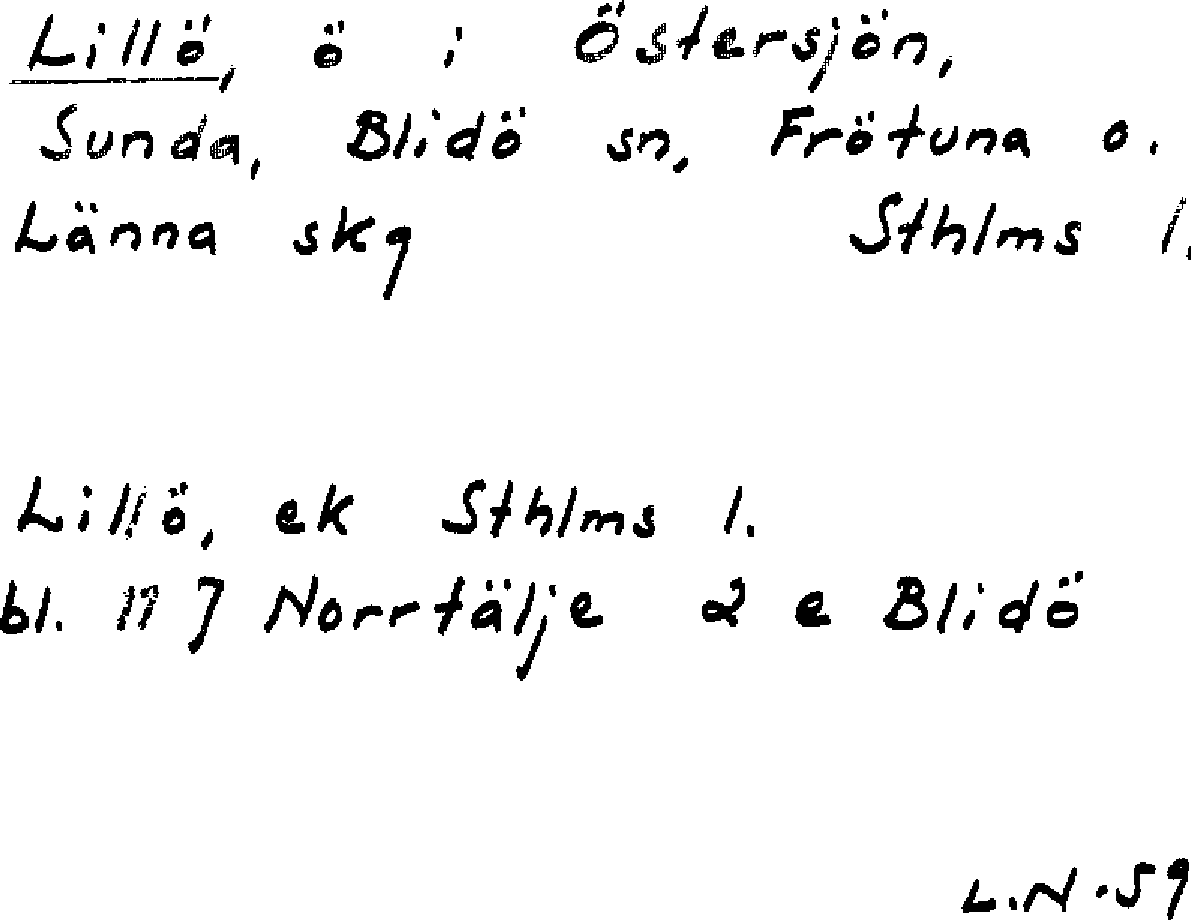 Lillö, ö i Östersjön,
Sunda, Blidö sn, Frötuna o.
Länna skg Sthlms l.
Lillö, ek Sthlms l.
bl. 117 Norrtälje 2 e Blidö
L.N.59